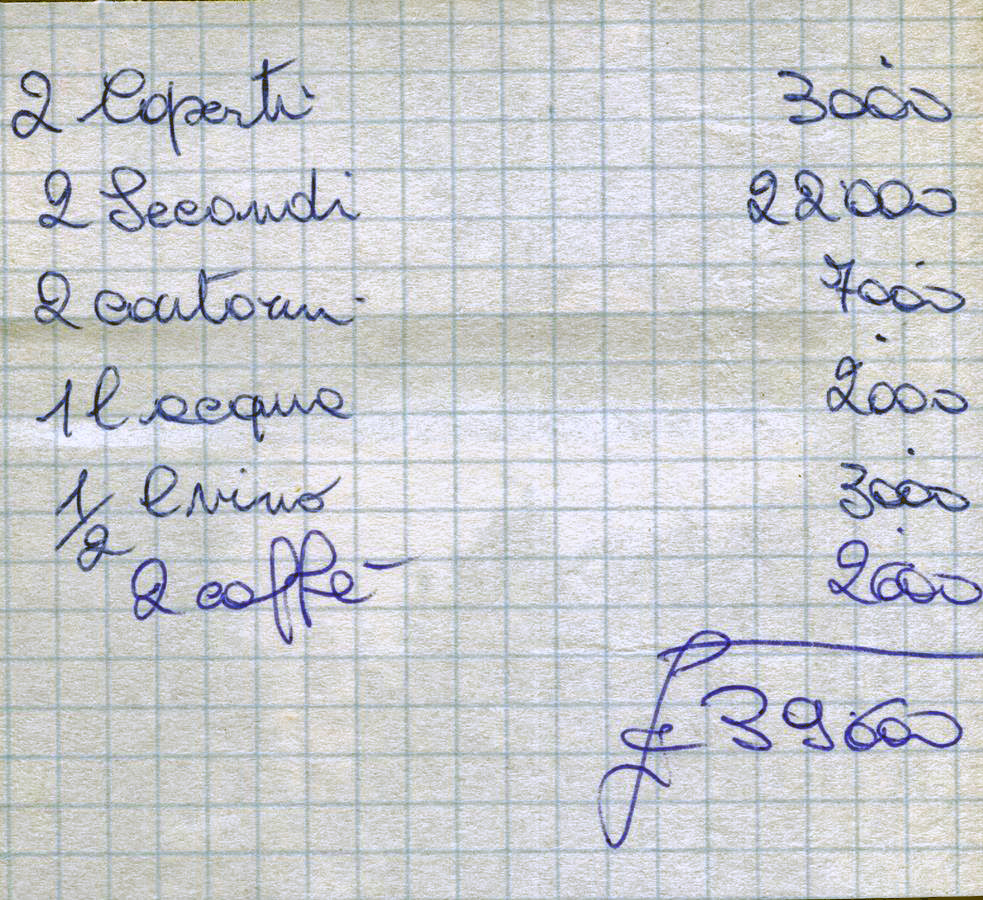 2 Coperti 3000
2 Secondi 22000
2 contorni 7000
1 l acqua 2000
1/2 l vino 3000
2 caffè 2000
£ 39000